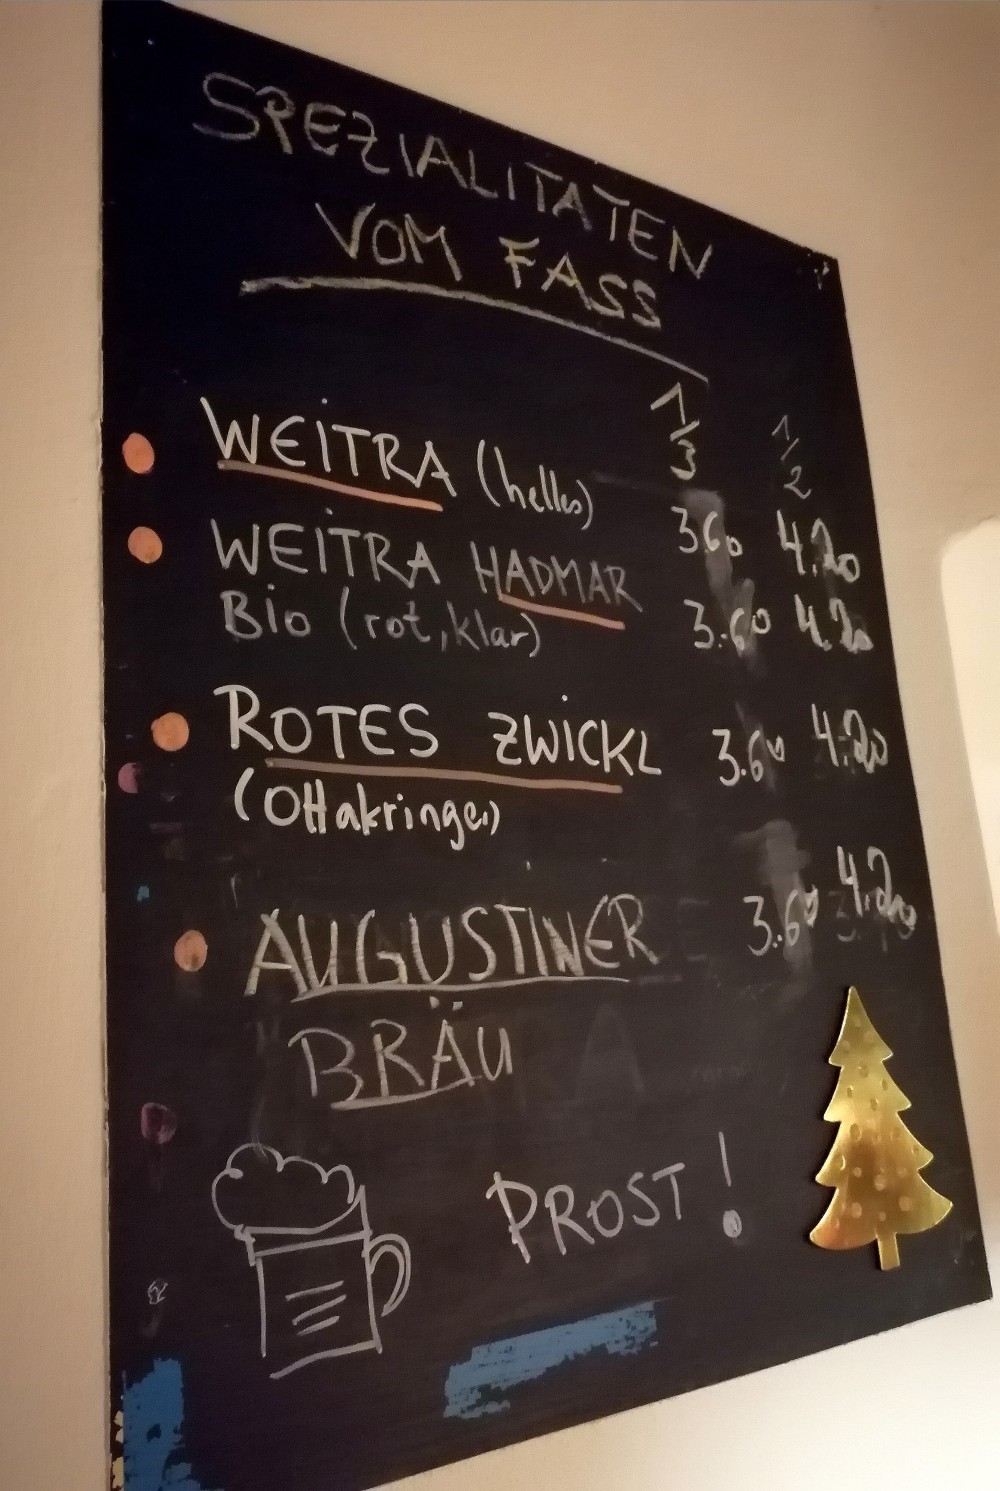 SPEZIALITATEN
VOM FASS
1/3 1/2
WEITRA (helles) 3.60 4.20
WEITRA HADMAR
Bio (rot, klar) 3.60 4.20
ROTES ZWICKL 3.60 4.20
(Ottakringer)
AUGUSTINER 3.60 4.20
BRÄU
PROST!